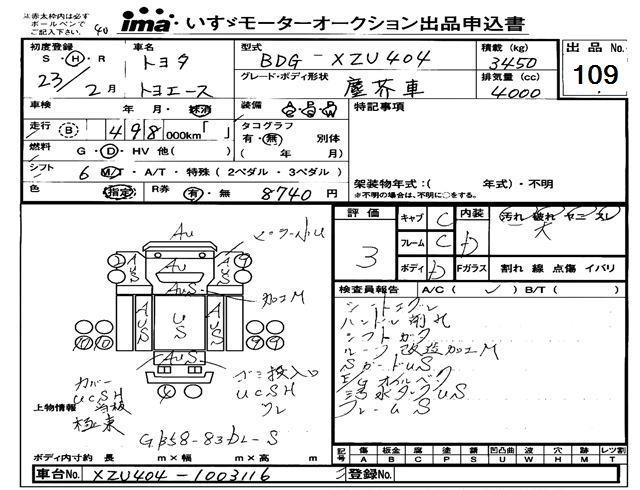 ※赤太枠内は必ず
ボールペンで
ご記入下さい。
ima いすゞモーターオークション出品申込書
初度登録 S・H・R 23/2月
車名 トヨタ トヨエース
型式 BDG-XZU404
グレード・ボディ形状 塵芥車
積載(kg) 3450
排気量(cc) 4000
出品No. 109
車検 年・月・抹消
装備 A/C P/S P/W
特記事項
走行 B 498000km「 」
タコグラフ 有・無 別体
( 年/ 月)
燃料 G・D・HV 他( )
シフト 6 M/T・A/T・特殊(2ペダル・3ペダル)
架装物年式:( 年式)・不明
※不明の場合は、不明に○をする。
色 指定 R券 有・無 8740円
評価 3
キャブ C
フレーム C
ボディ D
内装 D
汚れ 破れ ヤニ スレ
大
Fガラス 割れ 線 点傷 イバリ
検査員報告 A/C( ✓ ) B/T( )
シートスレ
ハンドル削れ
シフトガタ
ルーフ改造加工M
SガードUS
E/gオイルベタ
汚水タンクUS
フレームS
AU
AUS
AUS
AUS
加工M
AUS
US
AUS
AUS
カバー
UCSH
極東
ゴミ投入口
UCSH
上物情報
GB58-83DL-S
ボディ内寸約 長 m×幅 m×高 m
記号 傷A 板金B 腐C 塗P 錆S 凹凸曲U 波W 穴H 跡M レツ割T
車台No. XZU404-1003116
登録No.